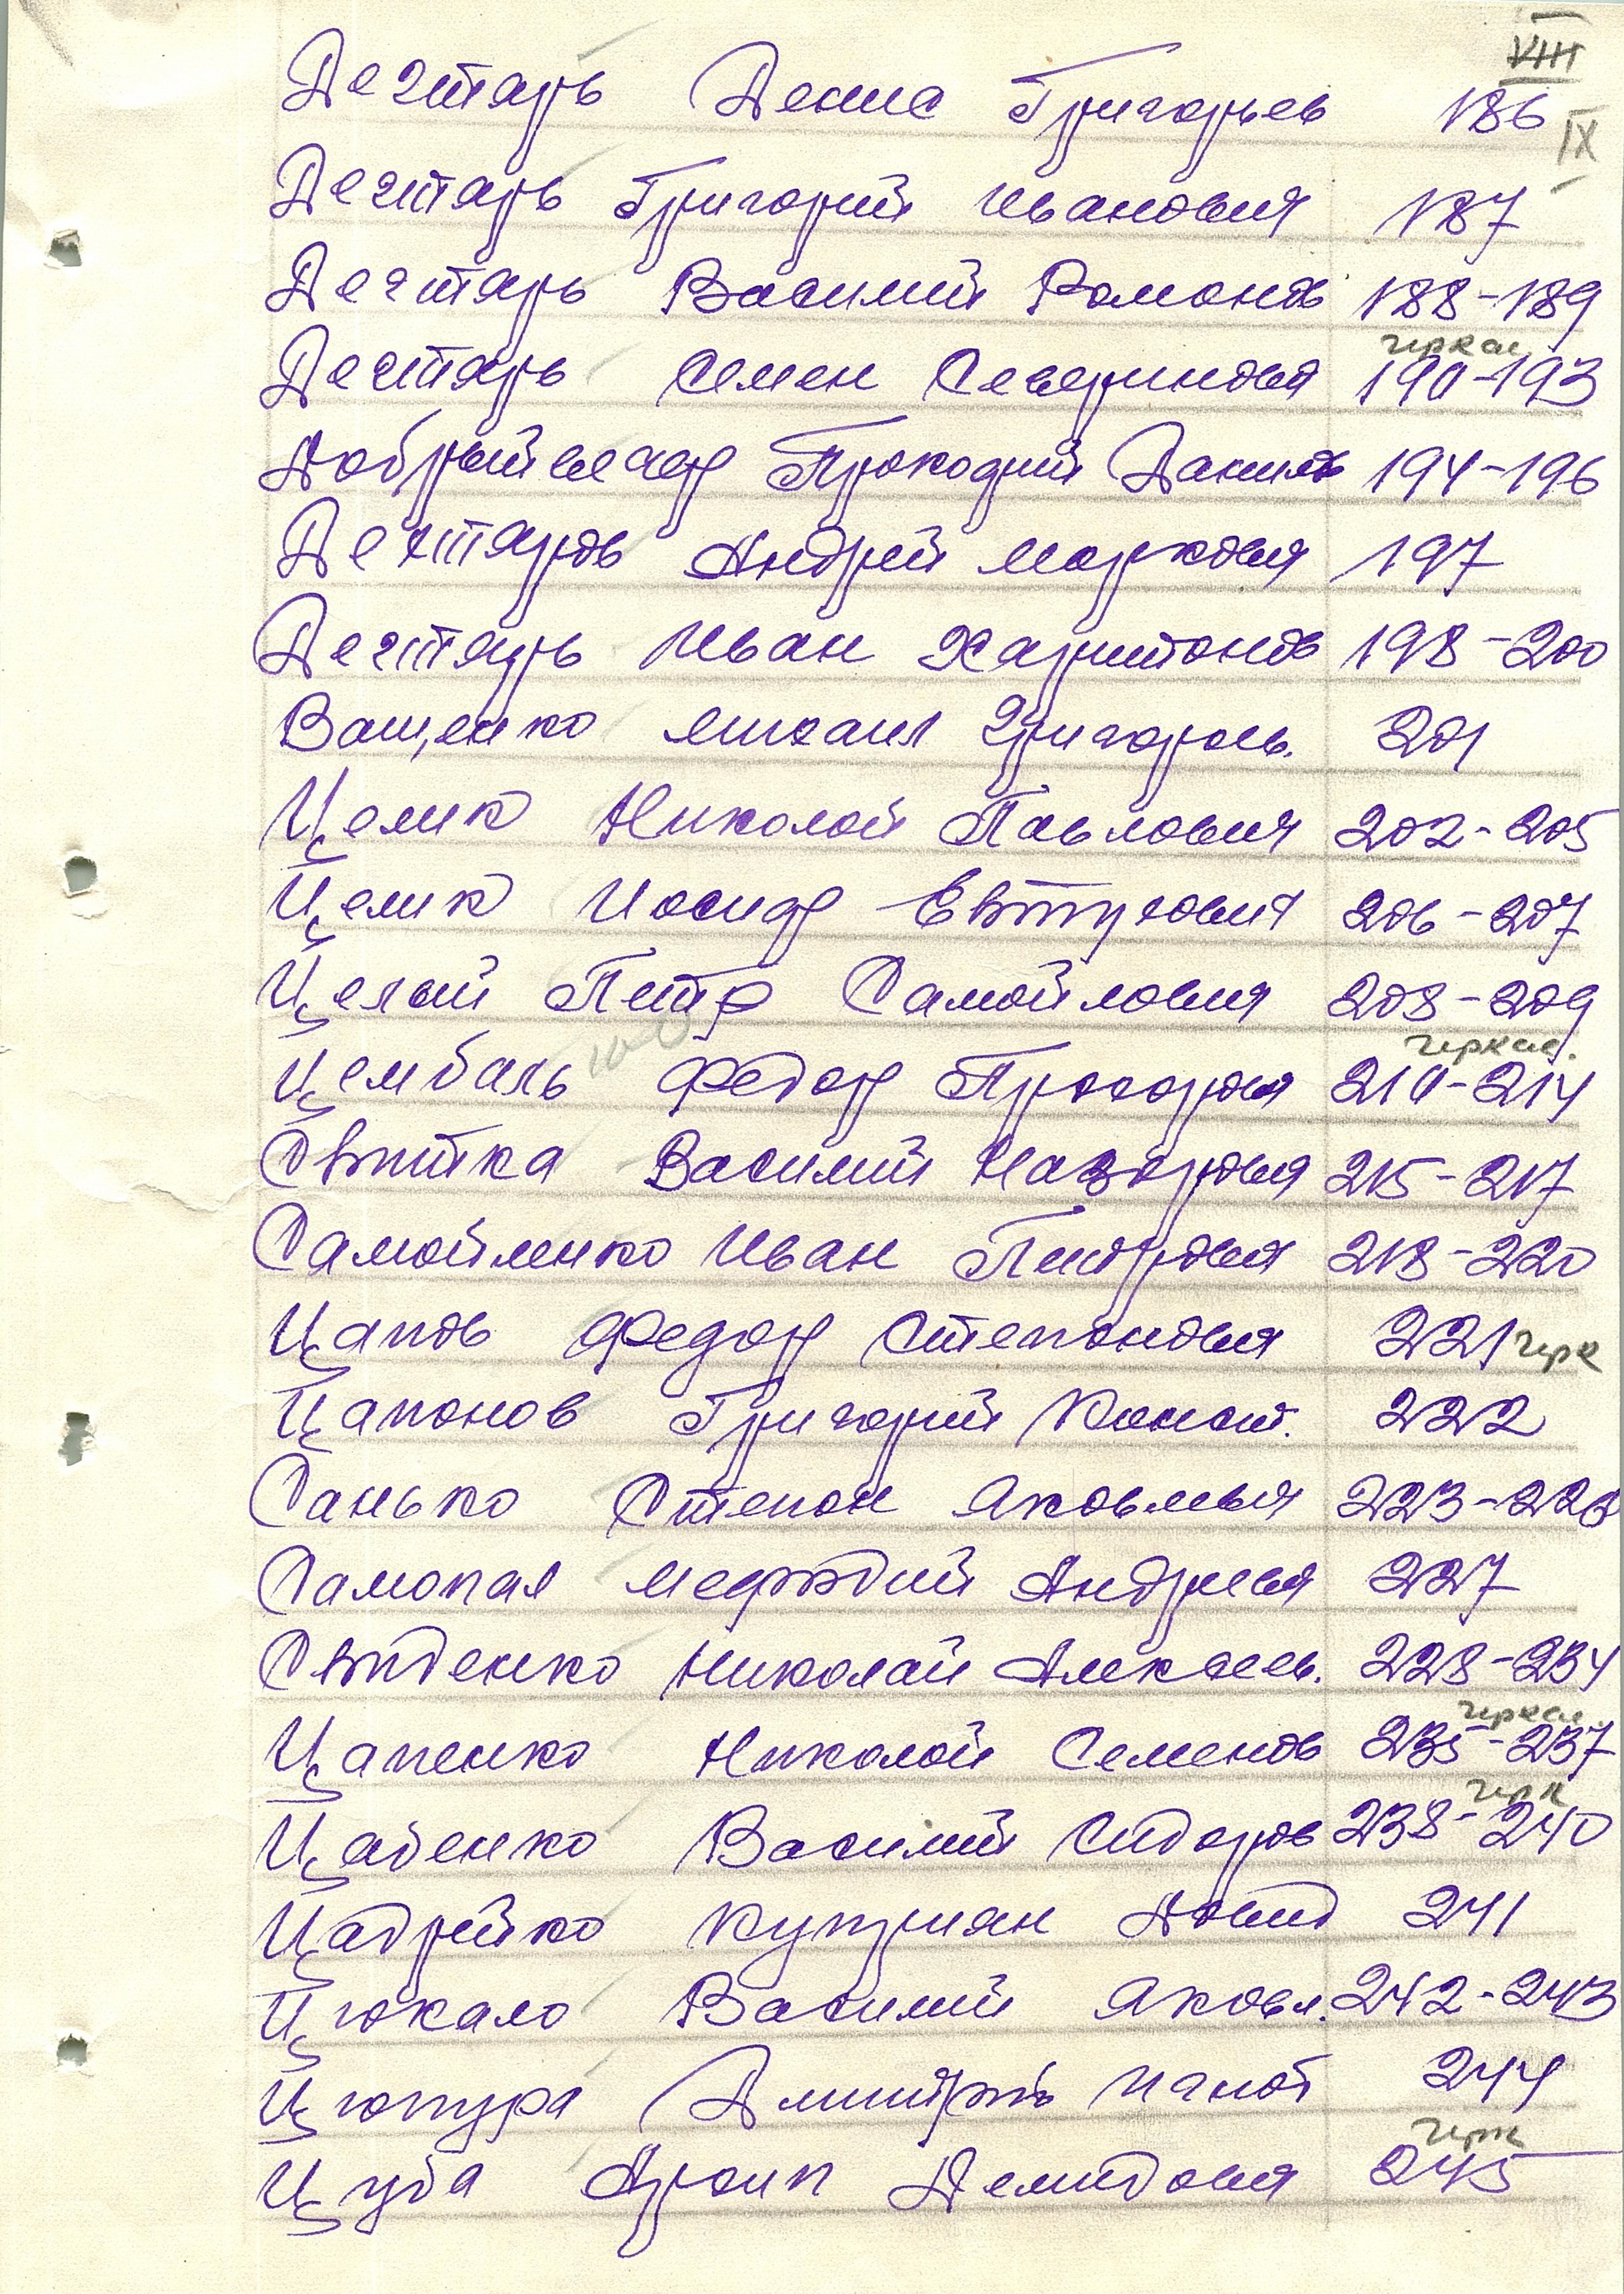 VIII
Дегтярь Денис Григорьев 186
IX
Дегтярь Григорий Иванович 187
Дегтярь Василий Романов 188-189
черкас
Дегтярь Семен Северинович 190-193
Добрый Прокофий Данилов 194-196
Дегтярев Андрей Маркович 197
Дегтярь Иван Харитонов 198-200
Ващенко Михаил Григорьев. 201
Целик Николай Павлович 202-205
Целик Иосиф Евтухович 206-207
Целый Петр Самойлович 208-209
черкас.
Цембаль Федор Прохорович 210-214
Свитка Василий Назарович 215-217
Самойленко Иван Петрович 218-220
Цапов Федор Степанович 221 черк
Цапонов Григорий Конст. 222
Санько Степан Яковлевич 223-226
Самопал Мефодий Андреевич 227
Свиденко Николай Алексеев. 228-234
черкас.
Цапенко Николай Семенов 235-237
черк
Цабенко Василий Сидоров 238-240
Цадрейко Куприян Давид 241
Цюкало Василий Яковл. 242-243
Цюпура Дмитрий Игнат 244
черк
Цуба Архип Демидович 245